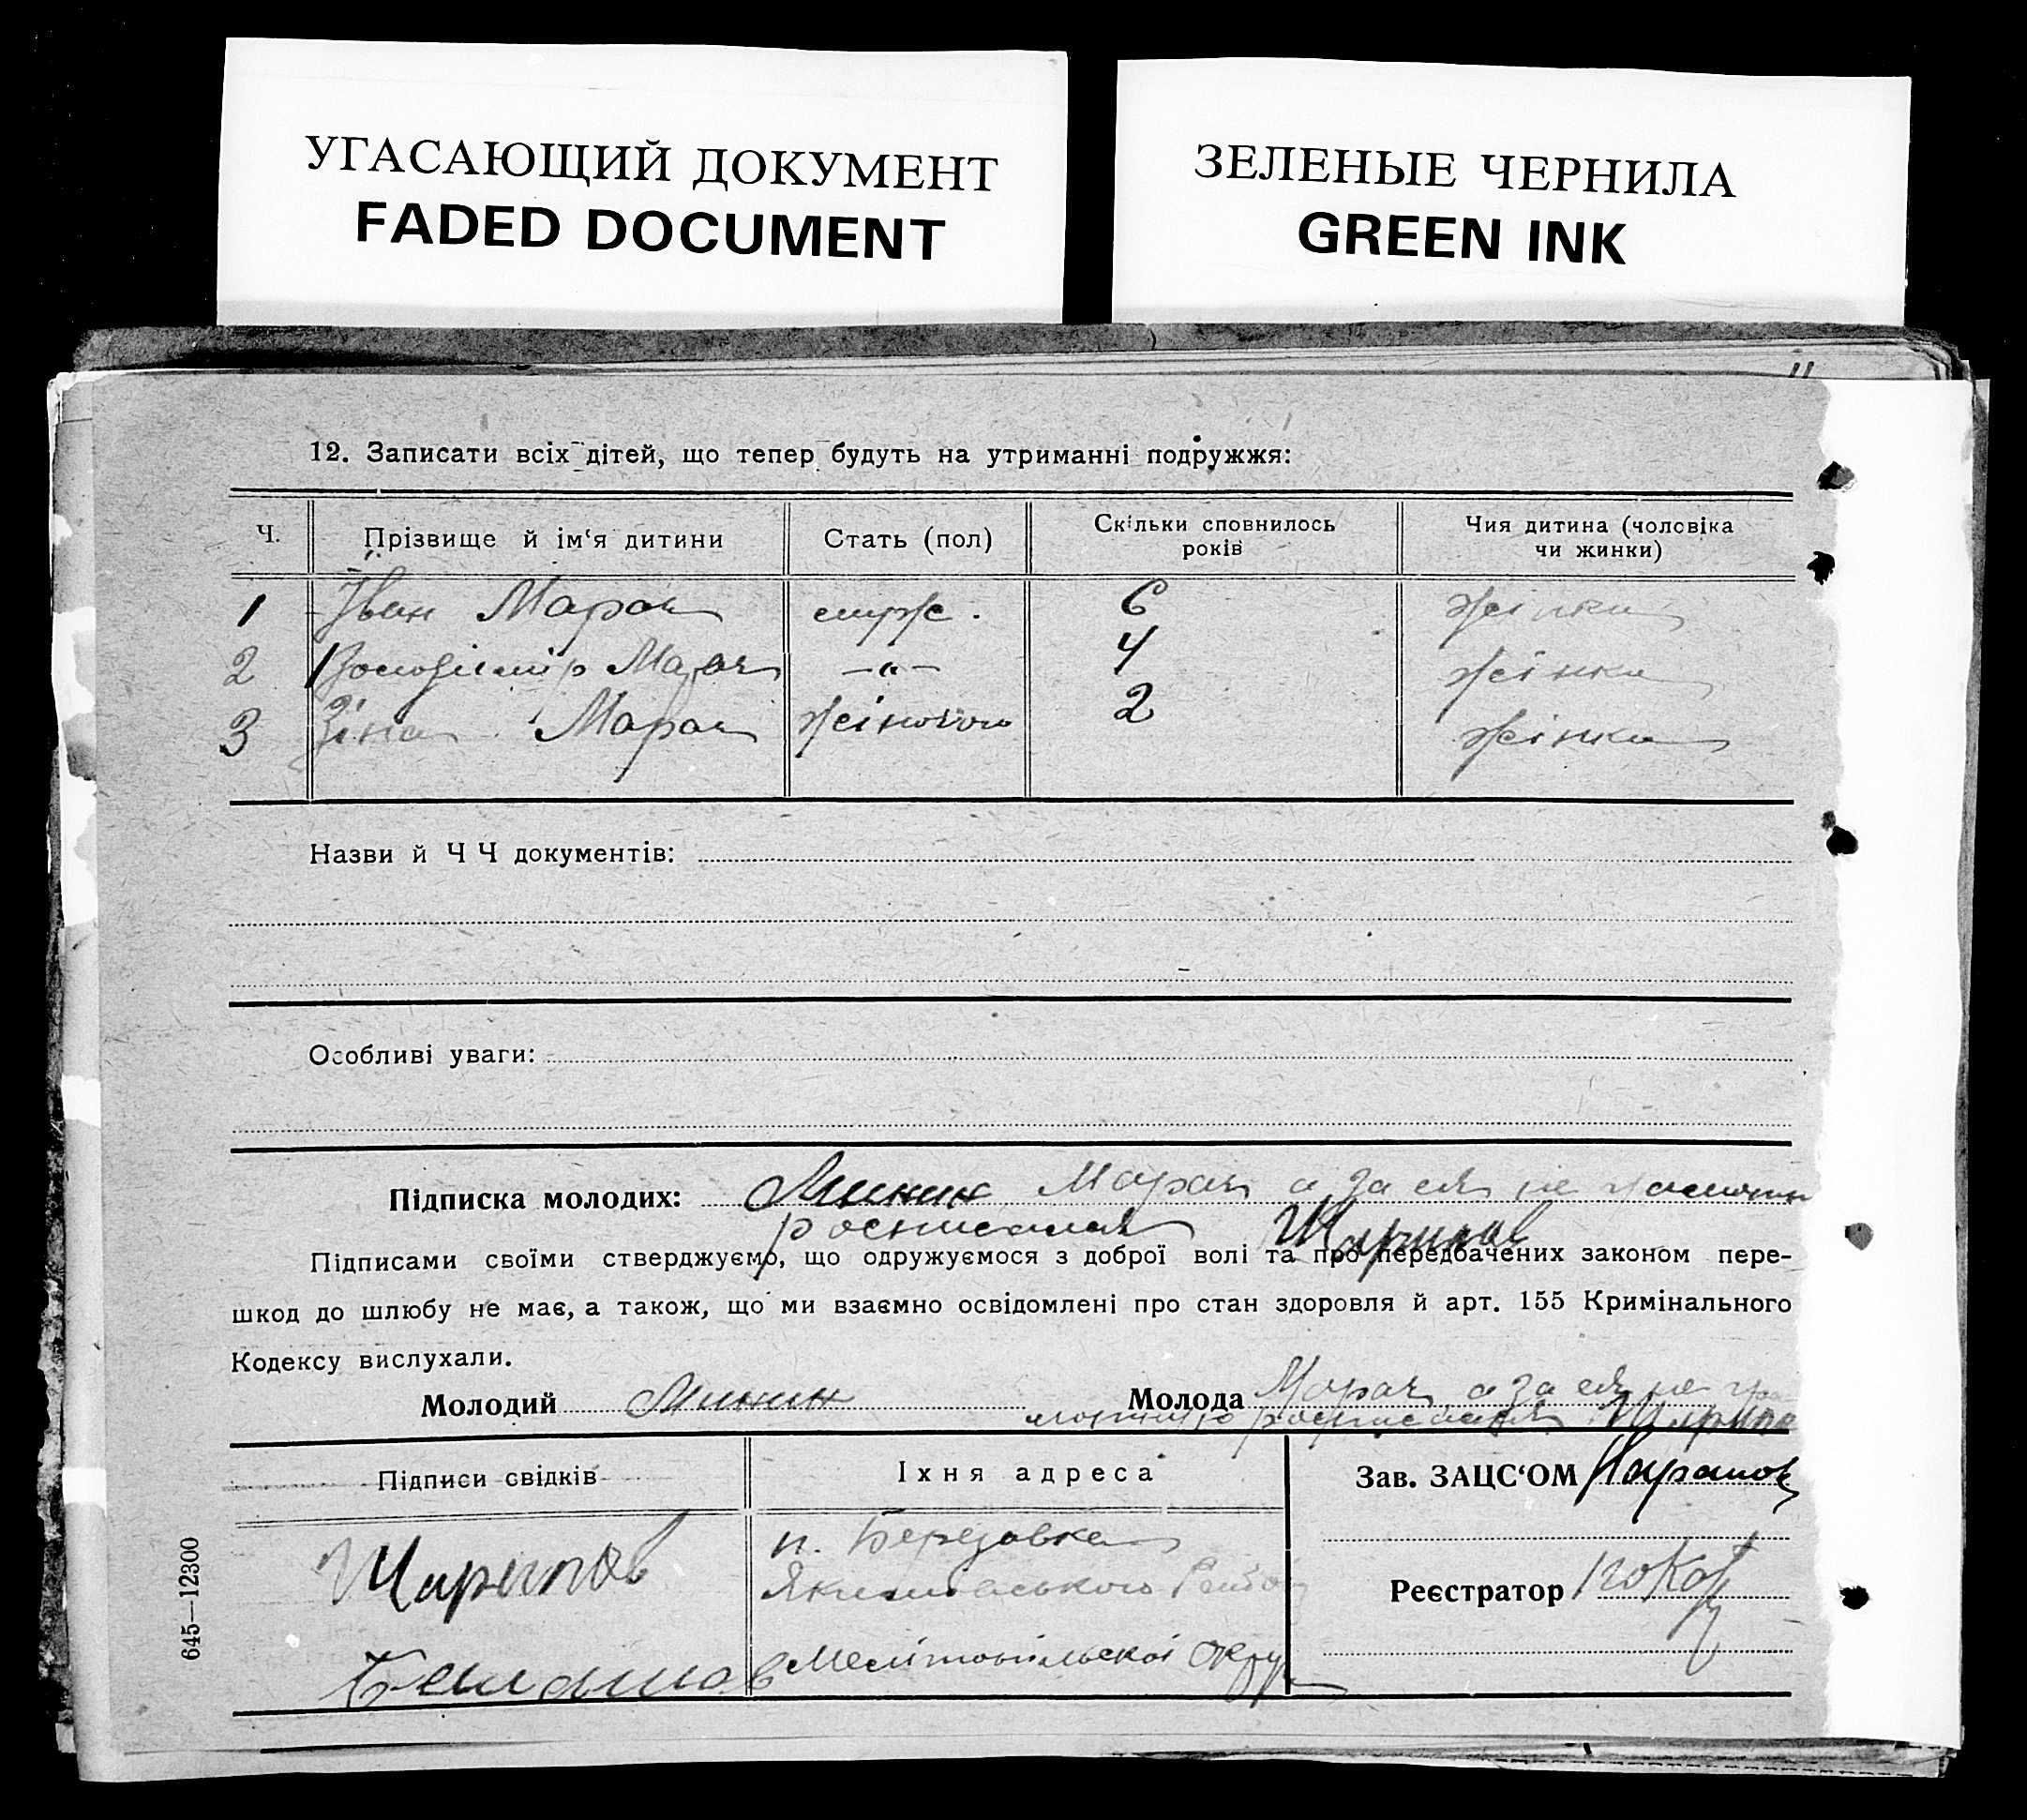 УГАСАЮЩИЙ ДОКУМЕНТ
FADED DOCUMENT
ЗЕЛЕНЫЕ ЧЕРНИЛА
GREEN INK
12. Записати всіх дітей, що тепер будуть на утриманні подружжя:
Ч. Прізвище й ім'я дитини Стать (пол) Скільки сповнилось років Чия дитина (чоловіка чи жинки)
1 Іван Марач 6 жінки
2 Володімір Марач —„— 4 жінки
3 Зіна Марач жіночого 2 жінки
Назви й Ч Ч документів:
Особливі уваги:
Підписка молодих: Минин Марач а за ея не
росписался Шарипов
Підписами своїми стверджуємо, що одружуємося з доброї волі та про передбачених законом пере-
шкод до шлюбу не має, а також, що ми взаємно освідомлені про стан здоровля й арт. 155 Кримінального
Кодексу вислухали.
Молодий Минин Молода Марач а за ея не
росписался
Підписи свідків Їхня адреса Зав. ЗАЦС'ОМ
Шарипов н. Березовка
Якимівського Району Реєстратор
Мелітопільскоі Округи
645—12300